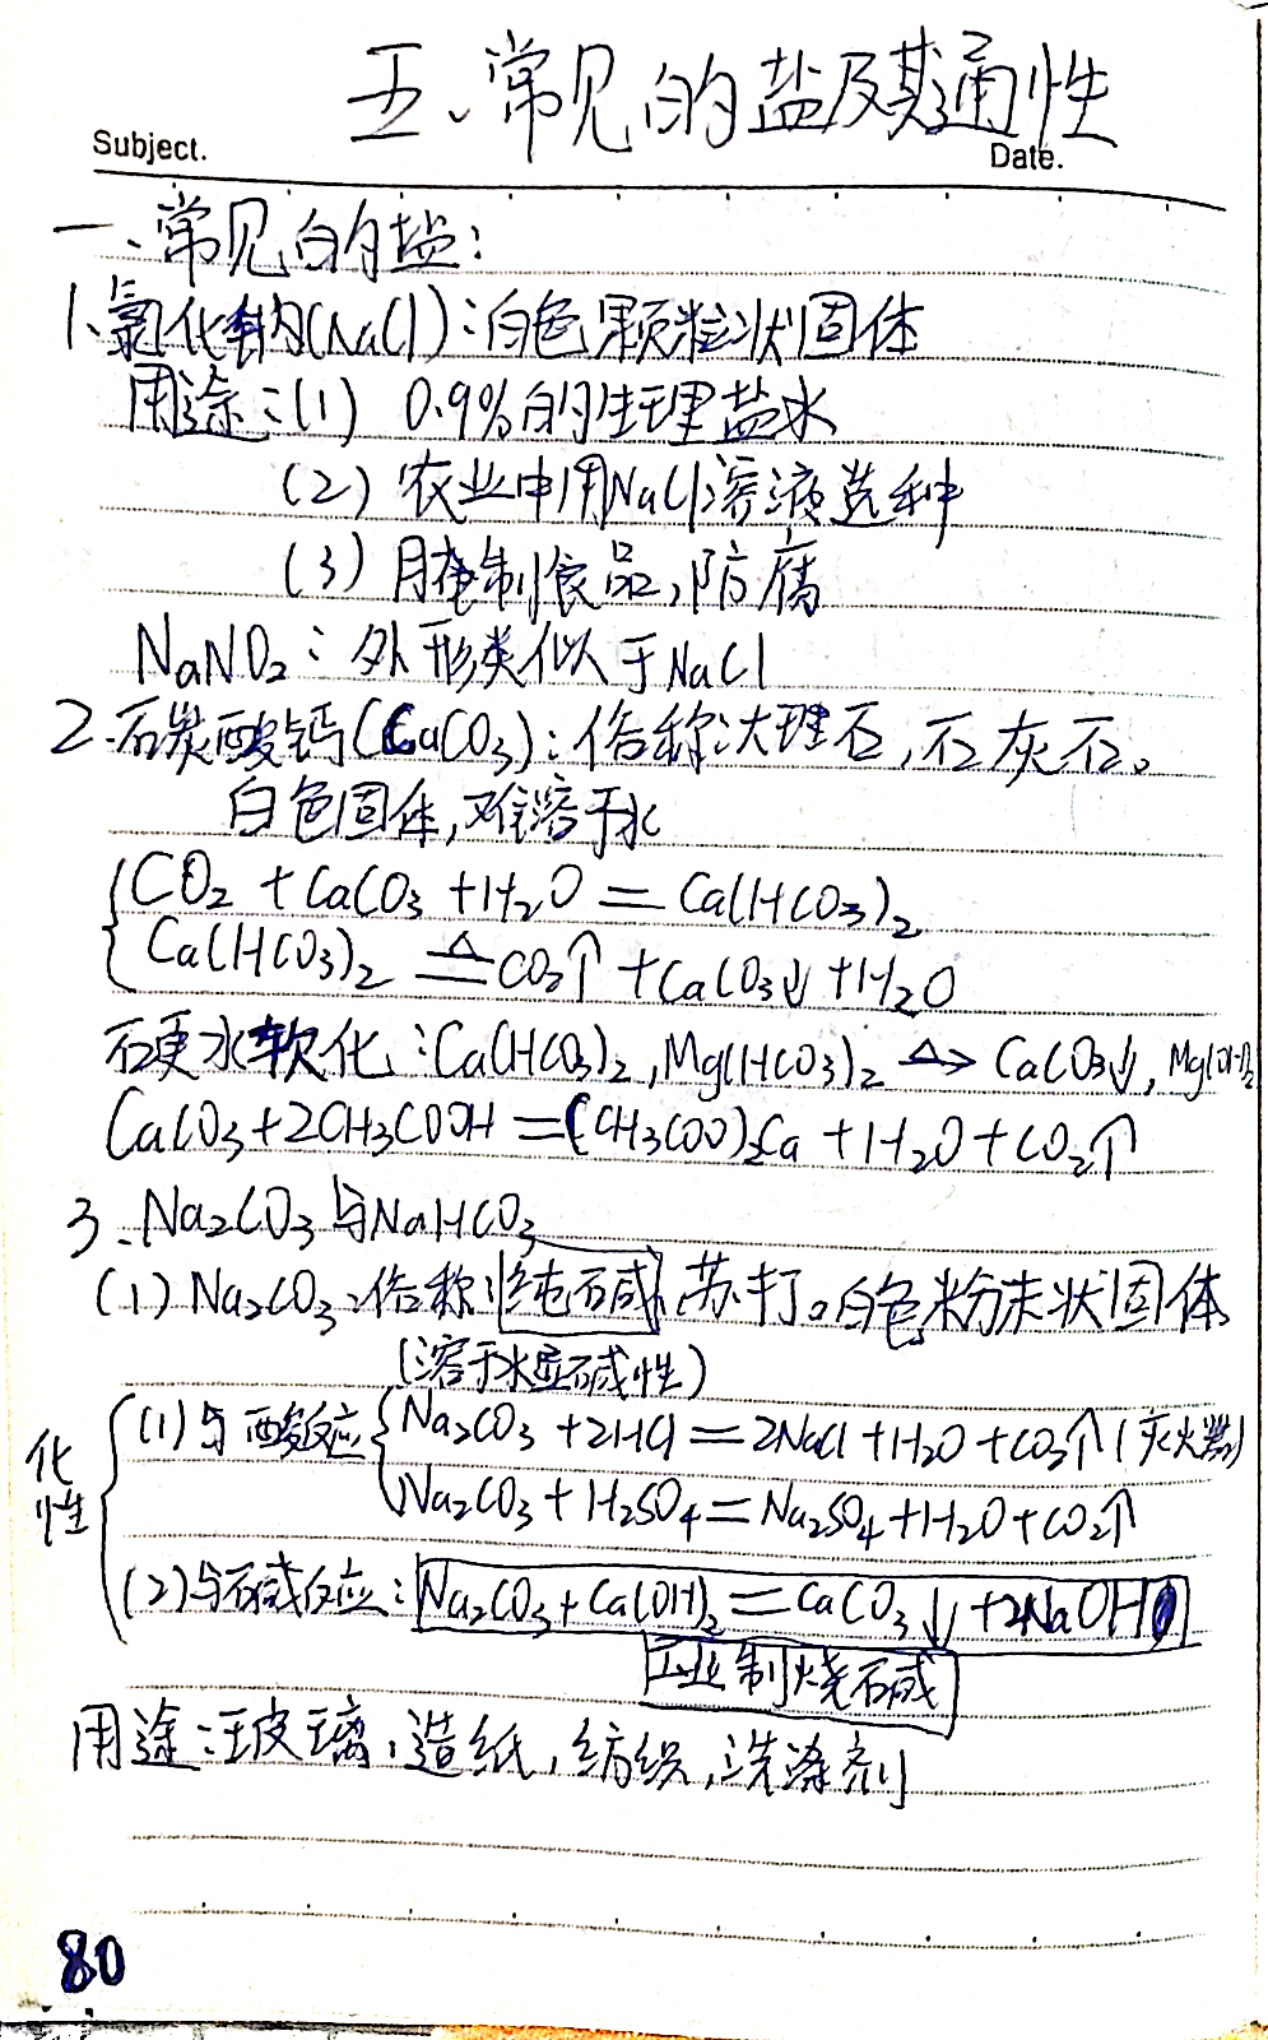 五、常见的盐及其通性
Subject.
Date.
一、常见的盐:
1、氯化钠(NaCl):白色颗粒状固体
用途:(1) 0.9%的生理盐水
(2) 农业中用NaCl溶液选种
(3) 腌制食品,防腐
NaNO₂:外形类似于NaCl
2.碳酸钙(CaCO₃):俗称:大理石,石灰石。
白色固体,难溶于水
CO₂ + CaCO₃ + H₂O = Ca(HCO₃)₂
Ca(HCO₃)₂ ≜ CO₂↑ + CaCO₃↓ + H₂O
硬水软化:Ca(HCO₃)₂,Mg(HCO₃)₂ △→ CaCO₃↓, Mg(OH)₂
CaCO₃+2CH₃COOH=(CH₃COO)₂Ca + H₂O + CO₂↑
3、Na₂CO₃与NaHCO₃
(1) Na₂CO₃:俗称:纯碱、苏打。白色粉末状固体
(溶于水显碱性)
化性
(1)与酸反应 Na₂CO₃ + 2HCl = 2NaCl + H₂O + CO₂↑(灭火器)
Na₂CO₃ + H₂SO₄ = Na₂SO₄ + H₂O + CO₂↑
(2)与碱反应:Na₂CO₃ + Ca(OH)₂ = CaCO₃↓ + 2NaOH
工业制烧碱
用途:玻璃,造纸,纺织,洗涤剂
80